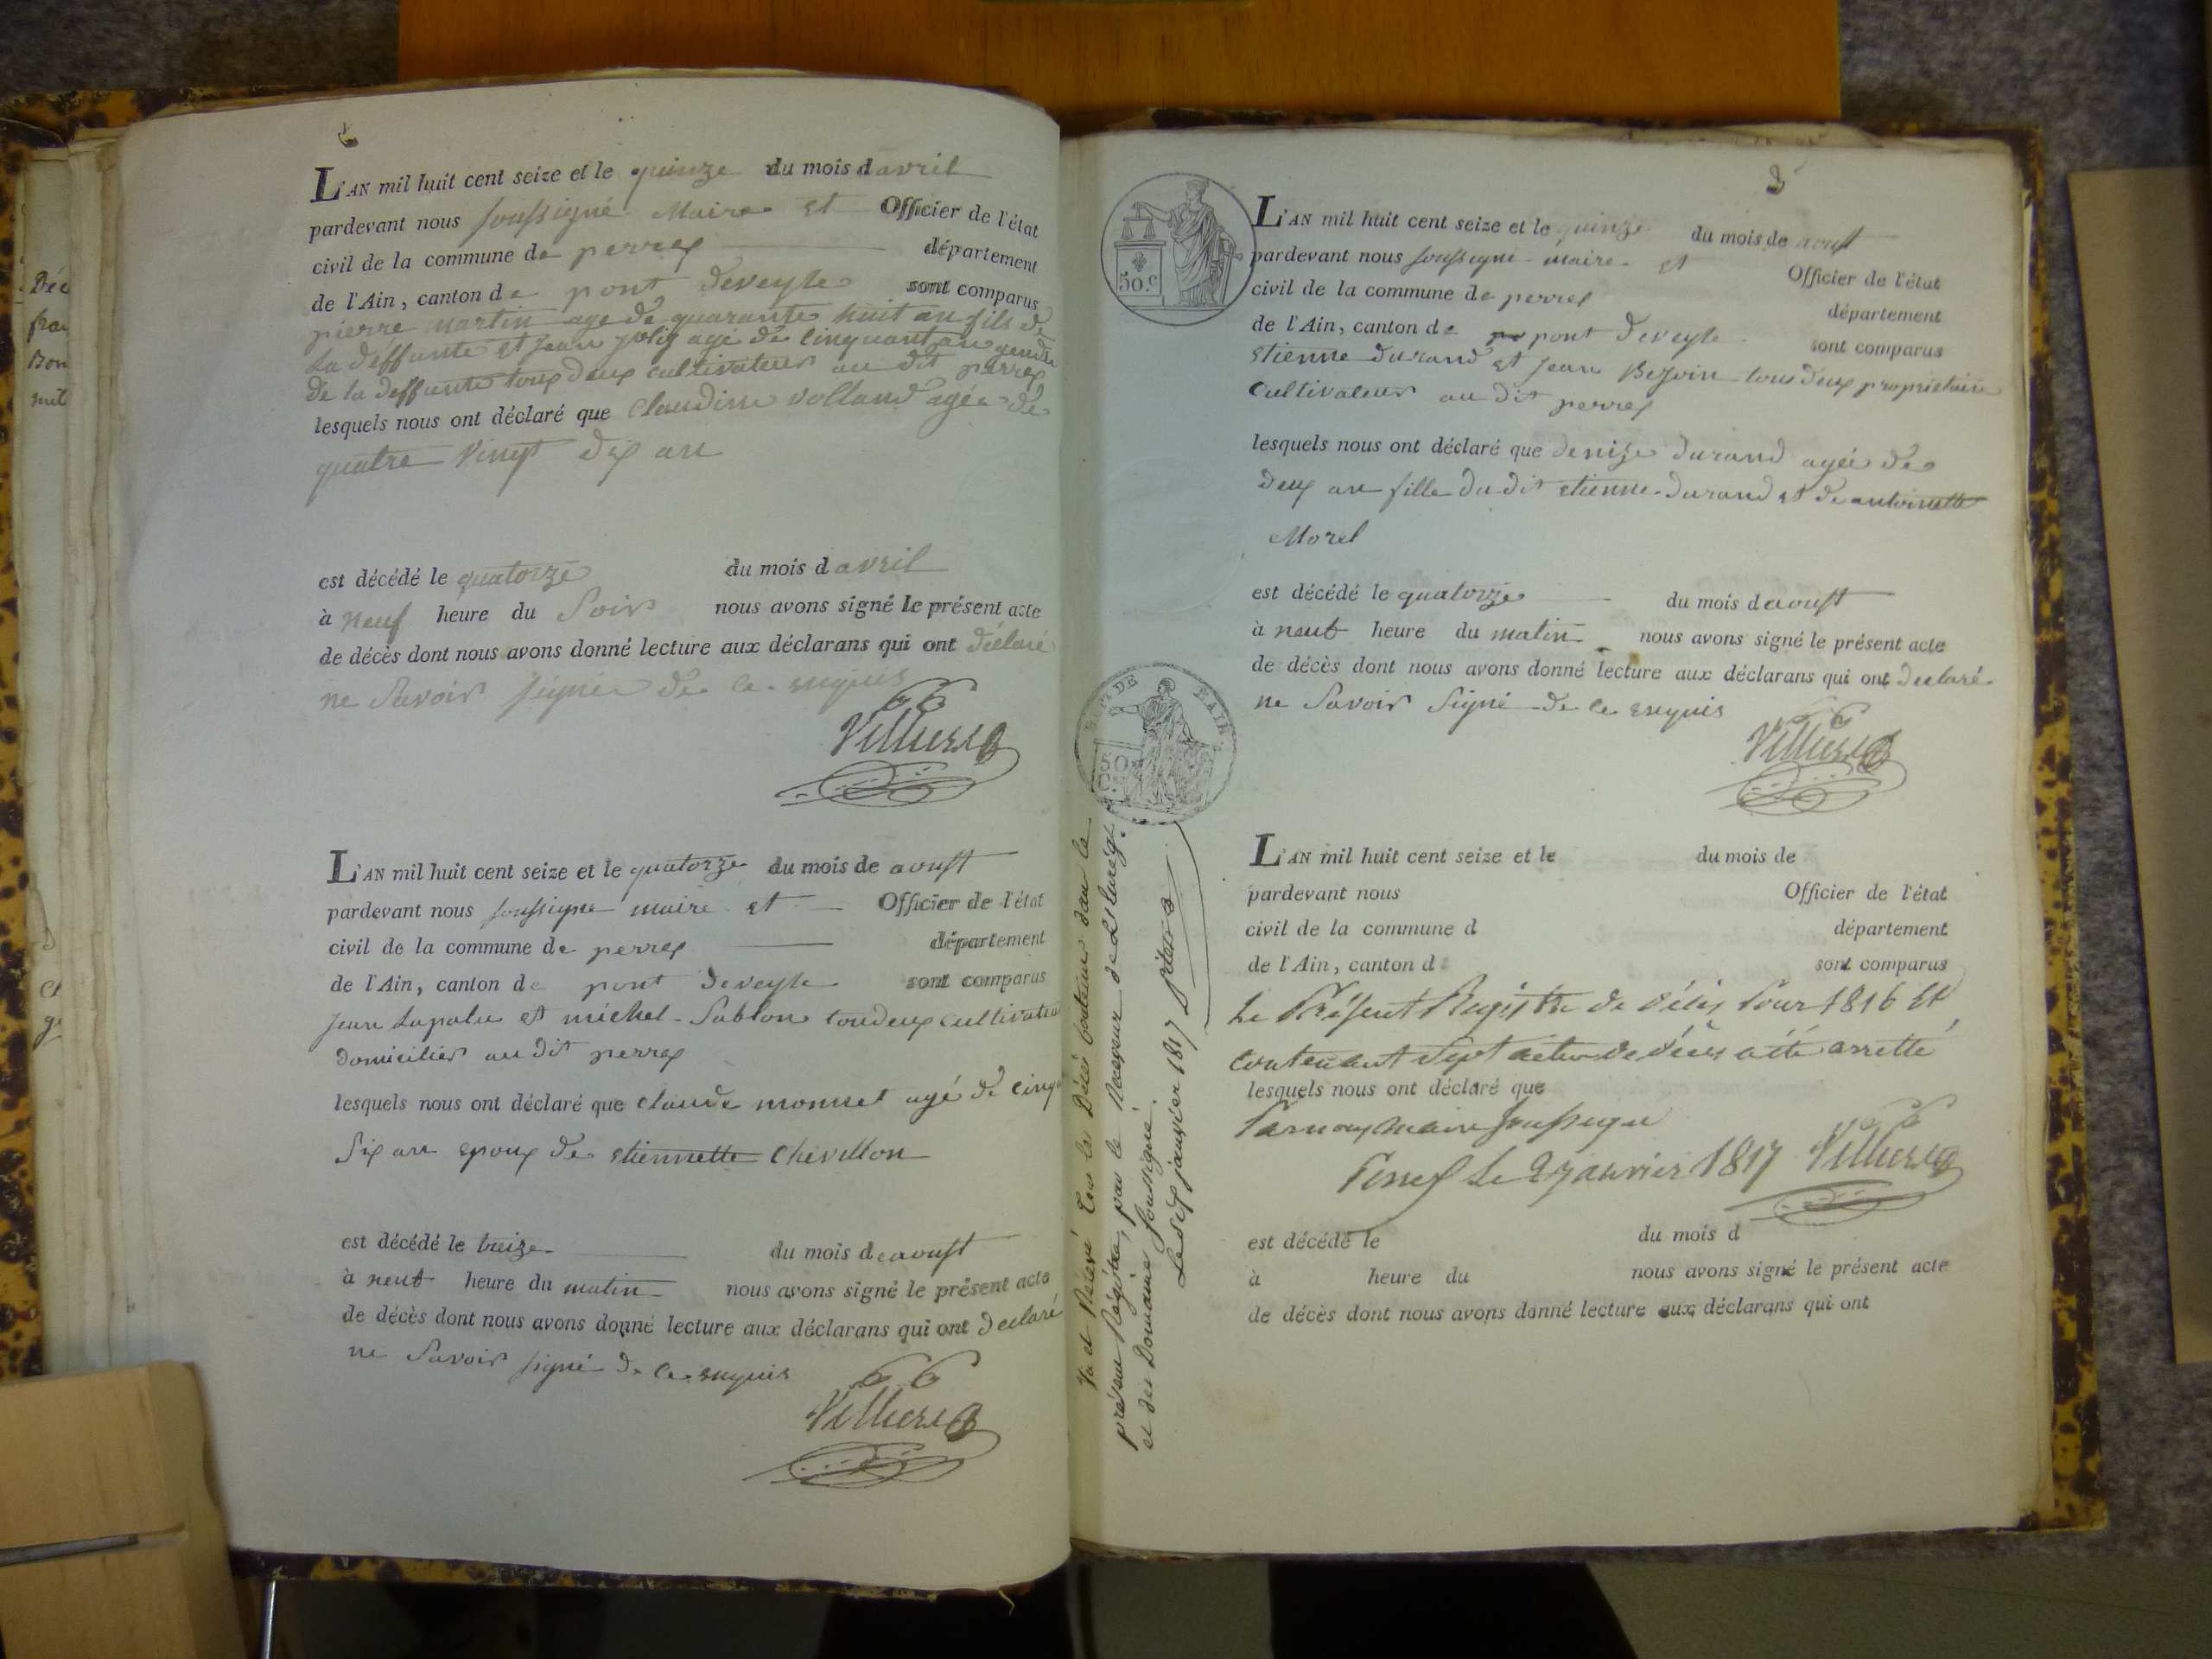 L'AN mil huit cent seize et le quinze du mois d avril
pardevant nous soussigné Maire et Officier de l'état
civil de la commune de perrex département
de l'Ain, canton de pont deveyle sont comparus
pierre martin age de quarante huit an fils de
la deffunte et Jean joly agé de cinquant an gendre
de la deffunte tous deux cultivateur au dit perrex
lesquels nous ont déclaré que Claudine volland agée de
quatre vingt dix an
est décédé le quatorze du mois d avril
à neuf heure du soir nous avons signé le présent acte
de décès dont nous avons donné lecture aux déclarans qui ont déclaré
ne savoir signer de ce enquis
L'AN mil huit cent seize et le quatorze du mois de aoust
pardevant nous soussigne maire et Officier de l'état
civil de la commune de perrex département
de l'Ain, canton de pont deveyle sont comparus
Jean Lapalu et michel Sablon toudeux cultivateu
domicilier au dit perrex
lesquels nous ont déclaré que claude monnet agé de cinq
six an epoux de etiennette chevillon
est décédé le treize du mois de aoust
à neuf heure du matin nous avons signé le présent acte
de décès dont nous avons donné lecture aux déclarans qui ont declaré
ne savoir signé de ce enquis
Vu et Relevé tous les Décès contenus dans le
présent Régistre, par le Receveur de l'Enregt.
et des Domaines soussigné.
Le dix janvier 1817
50.C
50
C
L'AN mil huit cent seize et le quinze du mois de aoust
pardevant nous soussigné maire et Officier de l'état
civil de la commune de perrex département
de l'Ain, canton de pont deveyle sont comparus
etienne durand et Jean Bejoin tous deux proprietaire
cultivateur au dit perrex
lesquels nous ont déclaré que denize durand agée de
deux an fille du dit etienne durand et de antoinette
Morel
est décédé le quatorze du mois de aoust
à neuf heure du matin nous avons signé le présent acte
de décès dont nous avons donné lecture aux déclarans qui ont declaré
ne savoir signé de ce enquis
L'AN mil huit cent seize et le du mois de
pardevant nous Officier de l'état
civil de la commune d département
de l'Ain, canton d sont comparus
Le Présent Registre de Décès Pour 1816 Et
contenant sept actes de décès a été arretté
lesquels nous ont déclaré que
Par nous maire soussigné
Perrex Le 2 janvier 1817
est décédé le du mois d
à heure du nous avons signé le présent acte
de décès dont nous avons donné lecture aux déclarans qui ont